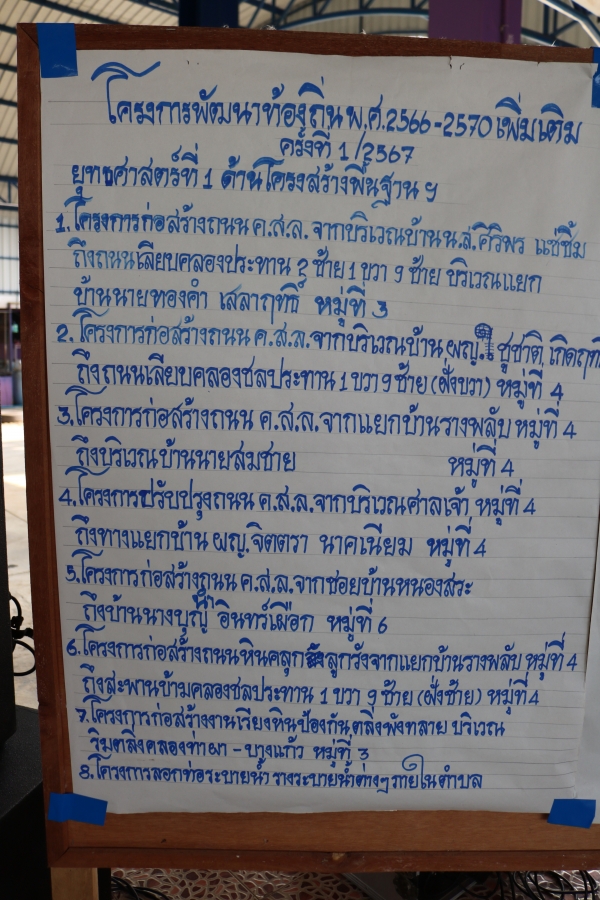 โครงการพัฒนาท้องถิ่น พ.ศ.2566-2570 เพิ่มเติม
ครั้งที่ 1/2567
ยุทธศาสตร์ที่ 1 ด้านโครงสร้างพื้นฐาน ฯ
1.โครงการก่อสร้างถนน ค.ส.ล. จากบริเวณบ้าน น.ส.ศิริพร แซ่ซิ้ม
ถึงถนนเลียบคลองประทาน 2 ซ้าย 1 ขวา 9 ซ้าย บริเวณแยก
บ้านนายทองคำ เสลาฤทธิ์ หมู่ที่ 3
2.โครงการก่อสร้างถนน ค.ส.ล.จากบริเวณบ้าน ผญ. ชูชาติ เกิดฤทธิ์
ถึงถนนเลียบคลองชลประทาน 1 ขวา 9 ซ้าย (ฝั่งขวา) หมู่ที่ 4
3.โครงการก่อสร้างถนน ค.ส.ล.จากแยกบ้านรางพลับ หมู่ที่ 4
ถึงบริเวณบ้านนายสมชาย หมู่ที่ 4
4.โครงการปรับปรุงถนน ค.ส.ล.จากบริเวณศาลเจ้า หมู่ที่ 4
ถึงทางแยกบ้าน ผญ.จิตตรา นาคเนียม หมู่ที่ 4
5.โครงการก่อสร้างถนน ค.ส.ล.จากซอยบ้านหนองสระ
ถึงบ้านนางบุญ อินทร์เผือก หมู่ที่ 6
6.โครงการก่อสร้างถนนหินคลุก ลูกรังจากแยกบ้านรางพลับ หมู่ที่ 4
ถึงสะพานข้ามคลองชลประทาน 1 ขวา 9 ซ้าย (ฝั่งซ้าย) หมู่ที่ 4
7.โครงการก่อสร้างงานเรียงหินป้องกันตลิ่งพังทลาย บริเวณ
ริมตลิ่งคลองท่าผา - บางแก้ว หมู่ที่ 3
8.โครงการลอกท่อระบายน้ำ รางระบายน้ำต่างๆ ภายในตำบล